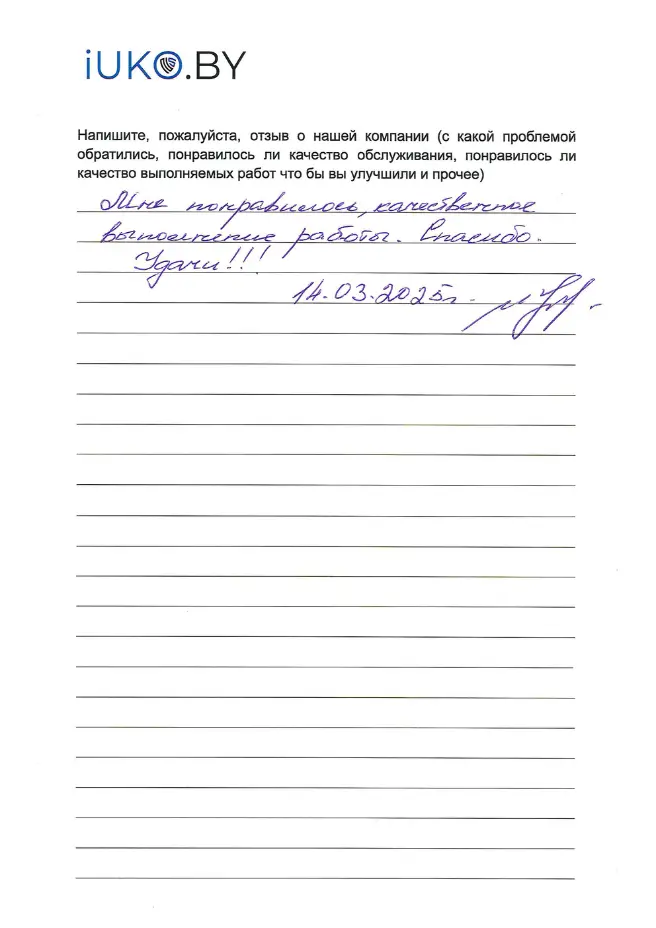 iUKO.BY
Напишите, пожалуйста, отзыв о нашей компании (с какой проблемой
обратились, понравилось ли качество обслуживания, понравилось ли
качество выполняемых работ что бы вы улучшили и прочее)
Мне понравилось, качественное
выполнение работы. Спасибо.
Удачи!!!
14.03.2025г.